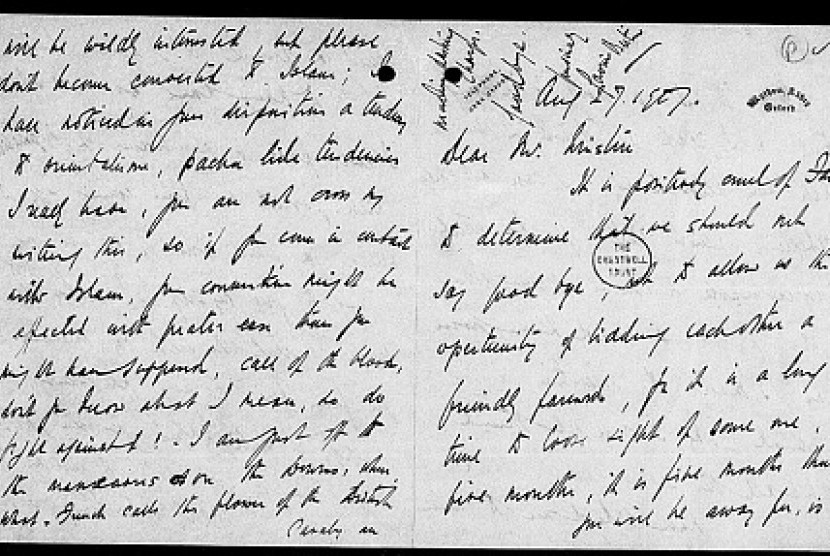 will be wildly interested, but please
don't become converted to Islam; I
have noticed in your disposition a tendency
to orientalism, pacha like tendencies
I really have, you are not cross my
writing this, so if you come in contact
with Islam, your conversion might be
effected with greater ease than you
might have supposed, call of the blood,
don't you know what I mean, so do
fight against it! - I am just off to
the manoeuvres on the Downs, where
what French calls the flower of the British
Cavalry
good bye.
Wytham Abbey
Oxford
Aug 27. 1907.
Dear Mr. Winston
It is positively cruel of Fate
to determine that we should not
say good bye, to allow us the
opportunity of bidding each other a
friendly farewell, for it is a long
time to loose sight of some one,
five months, it is five months that
you will be away for, is
THE
CHARTWELL
TRUST